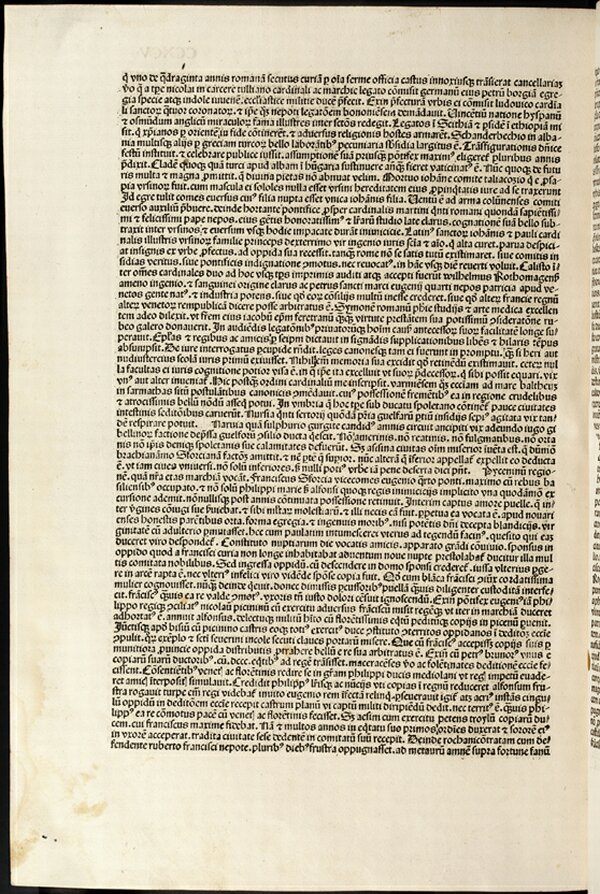 q̃ vno de q̃draginta annis romanā secutus curiā ꝑ oīa ferme officia castus innoxiusq; trāsierat cancellarias
vo q̄ a tpe nicolai in carcere tulliano cardinali ac marchie legato cōmisit germanū eius petrū borgiā egre-
gia specie atq; indole iuuenē. ecclesiastice militie ducē ꝓfecit. Exin ꝓfecturā vrbis ei cōmisit ludouico cardīa
li sanctoꝝ quatuor coronatoꝝ. & ipē qs nepoti legatōem bononiēsem demādauit. Vincētiū natione hyspanū
& osmūdum anglicū miraculoꝝ fama illustres inter sctōs redegit. Legatos ī Scithiā & ꝑsidē ī ethiopiā mi
sit. q̇ xp̄ianos ꝑ orientē in fide cōtinerēt. & aduersus religionis hostes armarēt. Schanderbechio in alba-
nia multisq; alijs ꝑ greciam turcoꝝ bello laborātib⁹ pecuniaria sbsidia largitus ē. Trāsfigurationis dn̄ice
festū instituit. & celebrare publice iussit. assumptione suā priusq̄ pōtifex maxim⁹ eligeret pluribus annis
p̄dixit. Clade q̄ turci apud albam ī hūgaria sustinuere anq̄ fieret vaticinat⁹ ē. de futu
ris multa & magna ꝓmittit. q̇ diuina pietas nō abnuat velim. Mortuo iohāne comite taliacoζo q̇ e ꝓsa-
pia vrsinoꝝ fuit. cum mascula ei soboles nulla esset vrsini hereditatem eius ꝓpinq̄tatis iure ad se traxerunt
Id egre tulit comes euersus cui⁹ filia nupta esset vnica iohānis filia. Ventū ē ad arma colūnenses comiti
euerso auxiliū p̄buere. deinde hortante pontifice ꝓsper cardinalis martini qnti romani quondā sapiētissi
mi & felicissimi pape nepos. eius gētis honoratissim⁹ & lr̄arū studio late clarus. cognatione suā bello sub-
traxit inter vrsinos & euersum vsq; hodie impacate durāt inimicicie. Latin⁹ sanctoꝝ iohānis & pauli cardi
nalis illustris vrsinoꝝ familie princeps dexterrimo vir ingenio iuris scīa & alo. q̇ alta curet. parua despici-
at insignis ex vrbe ꝓfectus. ad oppida sua recessit. tanq̄ rome nō se satis tutū existimaret. siue comitis in
sidias veritus. siue pontificis indignatione ꝯmotus. nec reuocat⁹. in hāc vsq; diē reuerti voluit. Calisto ī-
ter oēs cardinales duo ad hoc vsq; tps imprimis auditi atq; accepti fuerūt wilhelmus Rothomagens
ameno ingenio. & sanguinei origine clarus ac petrus sancti marci eugenij quarti nepos patricia apud ve-
netos gente nat⁹. & industria potens. siue q̇ eoꝝ cōsilijs multū inesse crederet. siue q̇ alter francie regnū
alter venetoꝝ rempublicā dicere posse arbitratus ē. Symonē romanū ꝓbe studijs & arte medica excellen
tem adeo dilexit. vt frēm eius iacobū epm̄ feretranū virtute prestātem sua potissimū ꝯsideratōne ru-
beo galero donauerit. In audiēdis legatōnib⁹ priuatoꝝq; hoīm causis antecessoꝝ suoꝝ facilitate longe su-
perauit. Epl̄as & regibus ac amicis ꝓ seipm dictauit in signādis supplicationibus libēs & hilaris tēpus
absumpsit. De iure interrogatus ꝑcupide rn̄dit. leges canonesq; tam ei fuerunt in promptu. q̄ si heri aut
nudiustercius scolā iuris primū exiuisset. Nihil em memoria sua excidit q̇ retinēdū existimauit. ceteꝝ nul
la facultas ei iuris cognitione potior visa ē. in q̄ ipe ita excelluit vt suoꝝ p̄decessoꝝ. q̇ sibi posset equari. vix
vn⁹ aut alter inueniat. Hic postq̄ ordini cardinaliū me inscripsit. varmiēsem qs ecciam ad mare baltheū
in sarmathas sitū postulātibus canonicis ꝯmēdauit. cui⁹ possessionē fremētib⁹ ea in regione crudelibus
& atrocissimis bellis nōdū asseq̇ potui. In vmbria q̇ hoc tpe sub ducatu spoletano cōtinet pauce ciuitates
intestinis seditōibus caruerūt. Nursia qnti sertorij quōdā pr̄ia guelfarū ꝑtiū insidijs sepi⁹ agitata vix tan
dē respirare potuit. Narnia quā sulphurio gurgite candid⁹ amnis circuit ancipiti vix adeundo iugo gi
bellinoꝝ factione depl̄sa guelfoꝝ ꝯsilio ducta q̇escit. Nō amerinis. nō reatinis. nō fulginatibus. nō orta
nis nō ipis deniq̇ spoletanis sue calamitates defuerūt. Sȝ assisina ciuitas oīm miserior iuēta est. q̄ dūmō
brachianāmō Sforcianā factōem amittit. & nē ꝑte q̄ superioꝝ. nūc alterā q̄ iferioꝝ appellat̄ expellit eo deducta
ē. vt iam ciues vniuersi. nō solū inferiores. sȝ nulli poti⁹ vrbe iā pene deserta dici pn̄t. Pycentinū regio-
nē. quā nr̄a etas marchiā vocat. Franciscus Sforcia vicecomes eugenio q̄rto ponti. maximo cū rebus ba
siliēsib⁹ occupato. & nō solū philippi marie sȝ alfonsi quoq; regis inimicicijs implicito vna quodāmō ex
cursione ademit. nōnullisq; post annis cōtinuata possessione retinuit. Interim captus amore puelle. q̄ in-
ter vgines cōiugi sue seruiebat. & sibi instar molestarū. & illi necis cā fuit. ppetua ea vocata ē. apud nouari
enses honestis parētibus orta. forma egregia. & ingenuis morib⁹. nisi potētis dn̄i decepta blandicijs. vir
ginitatē cū adulterio pmutasset. hec cum paulatim intumesceret viterus ad tegendū facin⁹. quesito qui eaȝ
duceret viro despondet̄. Constituto nuptiarum die vocatis amicis. apparato grādi cōuiuio. sponsus in
oppido quod a francisci curia non longe inhabitabat aduentum noue nupte prestolabat̄ ducitur illa mul
tis comitata nobilibus. Sed ingressa oppidū. cū descendere in domo sponsi crederet. iussa vlterius ꝑge-
re in arcē rapta ē. nec vlteri⁹ infelici viro vidēde spōse copia fuit. Qd̄ cum blāca frācisci vxor cordatissima
mulier cognouisset. nūq̄ deinde q̇euit. donec dimissis ꝑcussorib⁹ puellā quis diligenter custoditā interfe-
cit. francisc⁹ q̄uis ea re valde ꝯmot⁹. vxoris tn̄ iusto dolori cēsuit ignoscendū. Exin pōtifex eugeni⁹ iā phi-
lippo regiq; ꝯciliat⁹ nicolaū picininū cū exercitu aduersus frāciscū misit regēq; vt iter in marchiā duceret
adhortat⁹ ē. annuit alfonsus. delectuq; militū hīto cū florētissimis eqtū peditūq; copijs in picenū puenit.
Iūctisq; apō bissū cū picinino castris coq; toti⁹ exercit⁹ duce ꝯstituto territos oppidanos ī deditōeȝ eccīe
ꝯpulit. q̇ꝝ exēplo & scti seuerini incole secuti claues portarū misere. Que cū frācisc⁹ accepisȝ copijs suis ꝑ
munitiora ꝓuincie oppida distributis. ꝑtrahere bellū e re sua arbitratus ē. Exin cū petr⁹ brunor⁹ vnus e
copiarū suarū ductorib⁹. cū. dccc. eqtib⁹ ad regē trāsiset. maceracēses vo ac folētinates deditione eccīe fe-
cisset. Cōstituētib⁹ venet⁹ ac florētinis redire se in grām philippi ducis mediolani vt reg⁹ impetū euade-
ret amicī interposit⁹ simulauit. Credidit philipp⁹ lr̄isq; ac nūcijs vti copias ī regnū reduceret alfonsum fru-
stra rogauit turpe cm̄ regi videbat̄ inuito eugenio rem iferctā relinq̄. ꝑseuerauit igit̄ atȝ aeri⁹ instās cingu
lū oppidū in deditōem eccīe recepit castrum planū vi captū militi diripiēdū dedit. nec territ⁹ ē. quis phi-
lipp⁹ ea re cōmotus pacē cū venet⁹ ac florētinis fecisset. Sȝ aesim cum exercitu petens troylū copiarū du-
cem. cui franciscus maxime fidebat. Nā & multos annos in eqtatu suo primos ordines duxerat & sororē ei⁹
in vxorē acceperat. tradita ciuitate sese dedentē in comitatū suū recepit. Deinde rochā cōtratam cum de-
fendente ruberto francisci nepote. plurib⁹ dieb⁹ frustra oppugnasset. ad metaurū amnē supra fortune fanū